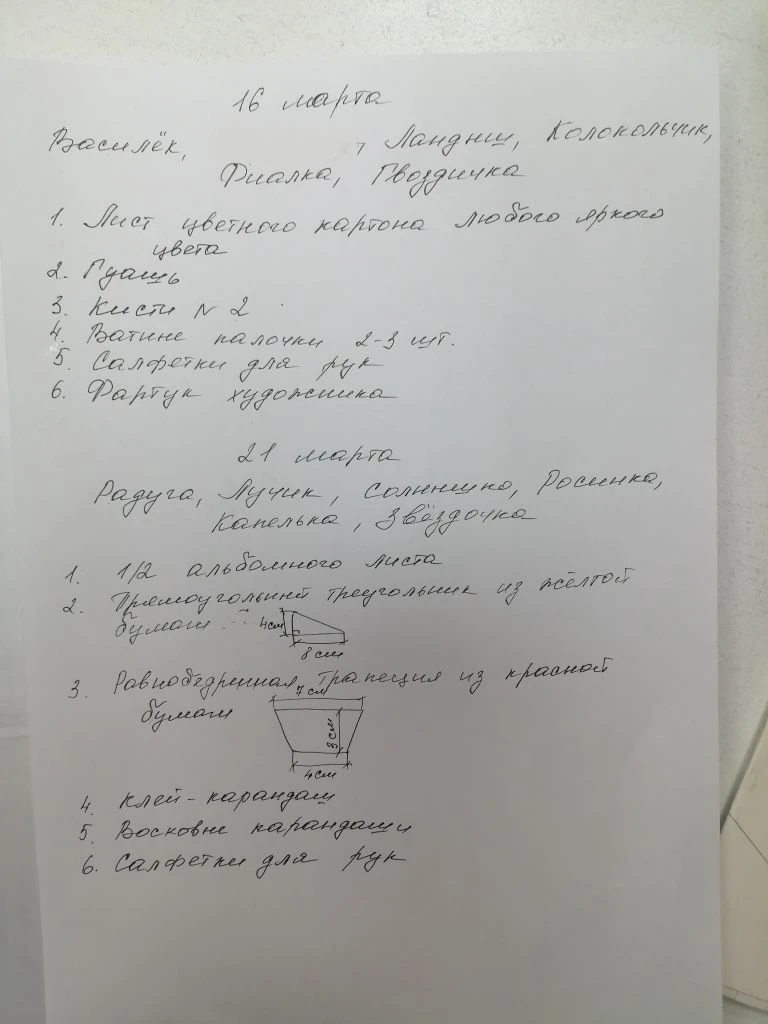 16 марта
Василёк, , Ландыш, Колокольчик,
Фиалка, Гвоздичка
1. Лист цветного картона любого яркого
цвета
2. Гуашь
3. Кисти № 2
4. Ватные палочки 2-3 шт.
5. Салфетки для рук
6. Фартук художника
21 марта
Радуга, Лучик, Солнышко, Росинка,
Капелька, Звёздочка
1. 1/2 альбомного листа
2. Прямоугольный треугольник из жёлтой
бумаги
4см
8см
3. Равнобедренная трапеция из красной
бумаги
7см
3см
4см
4. Клей-карандаш
5. Восковые карандаши
6. Салфетки для рук